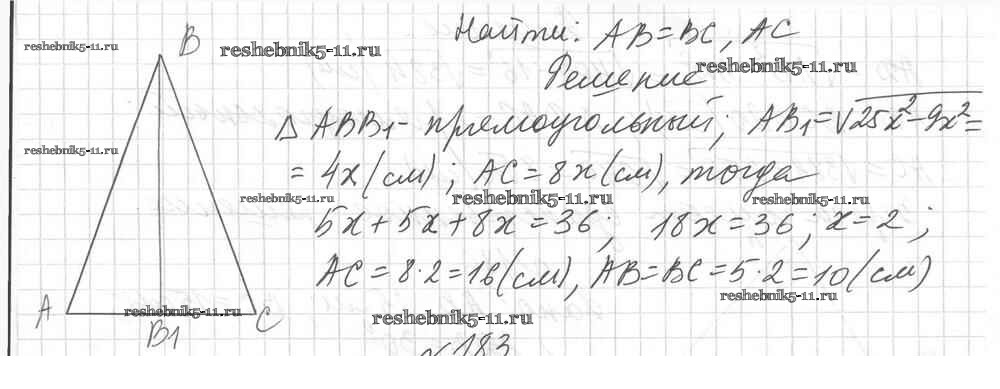 Найти: AB=BC, AC
Решение
Δ ABB1 - прямоугольный; AB1=√25x²-9x²=
= 4x(см); AC=8x(см), тогда
5x+5x+8x=36; 18x=36; x=2;
AC=8·2=16(см), AB=BC=5·2=10(см)
B
A
B1
C
№183
reshebnik5-11.ru
reshebnik5-11.ru
reshebnik5-11.ru
reshebnik5-11.ru
reshebnik5-11.ru
reshebnik5-11.ru
reshebnik5-11.ru
reshebnik5-11.ru
reshebnik5-11.ru
reshebnik5-11.ru